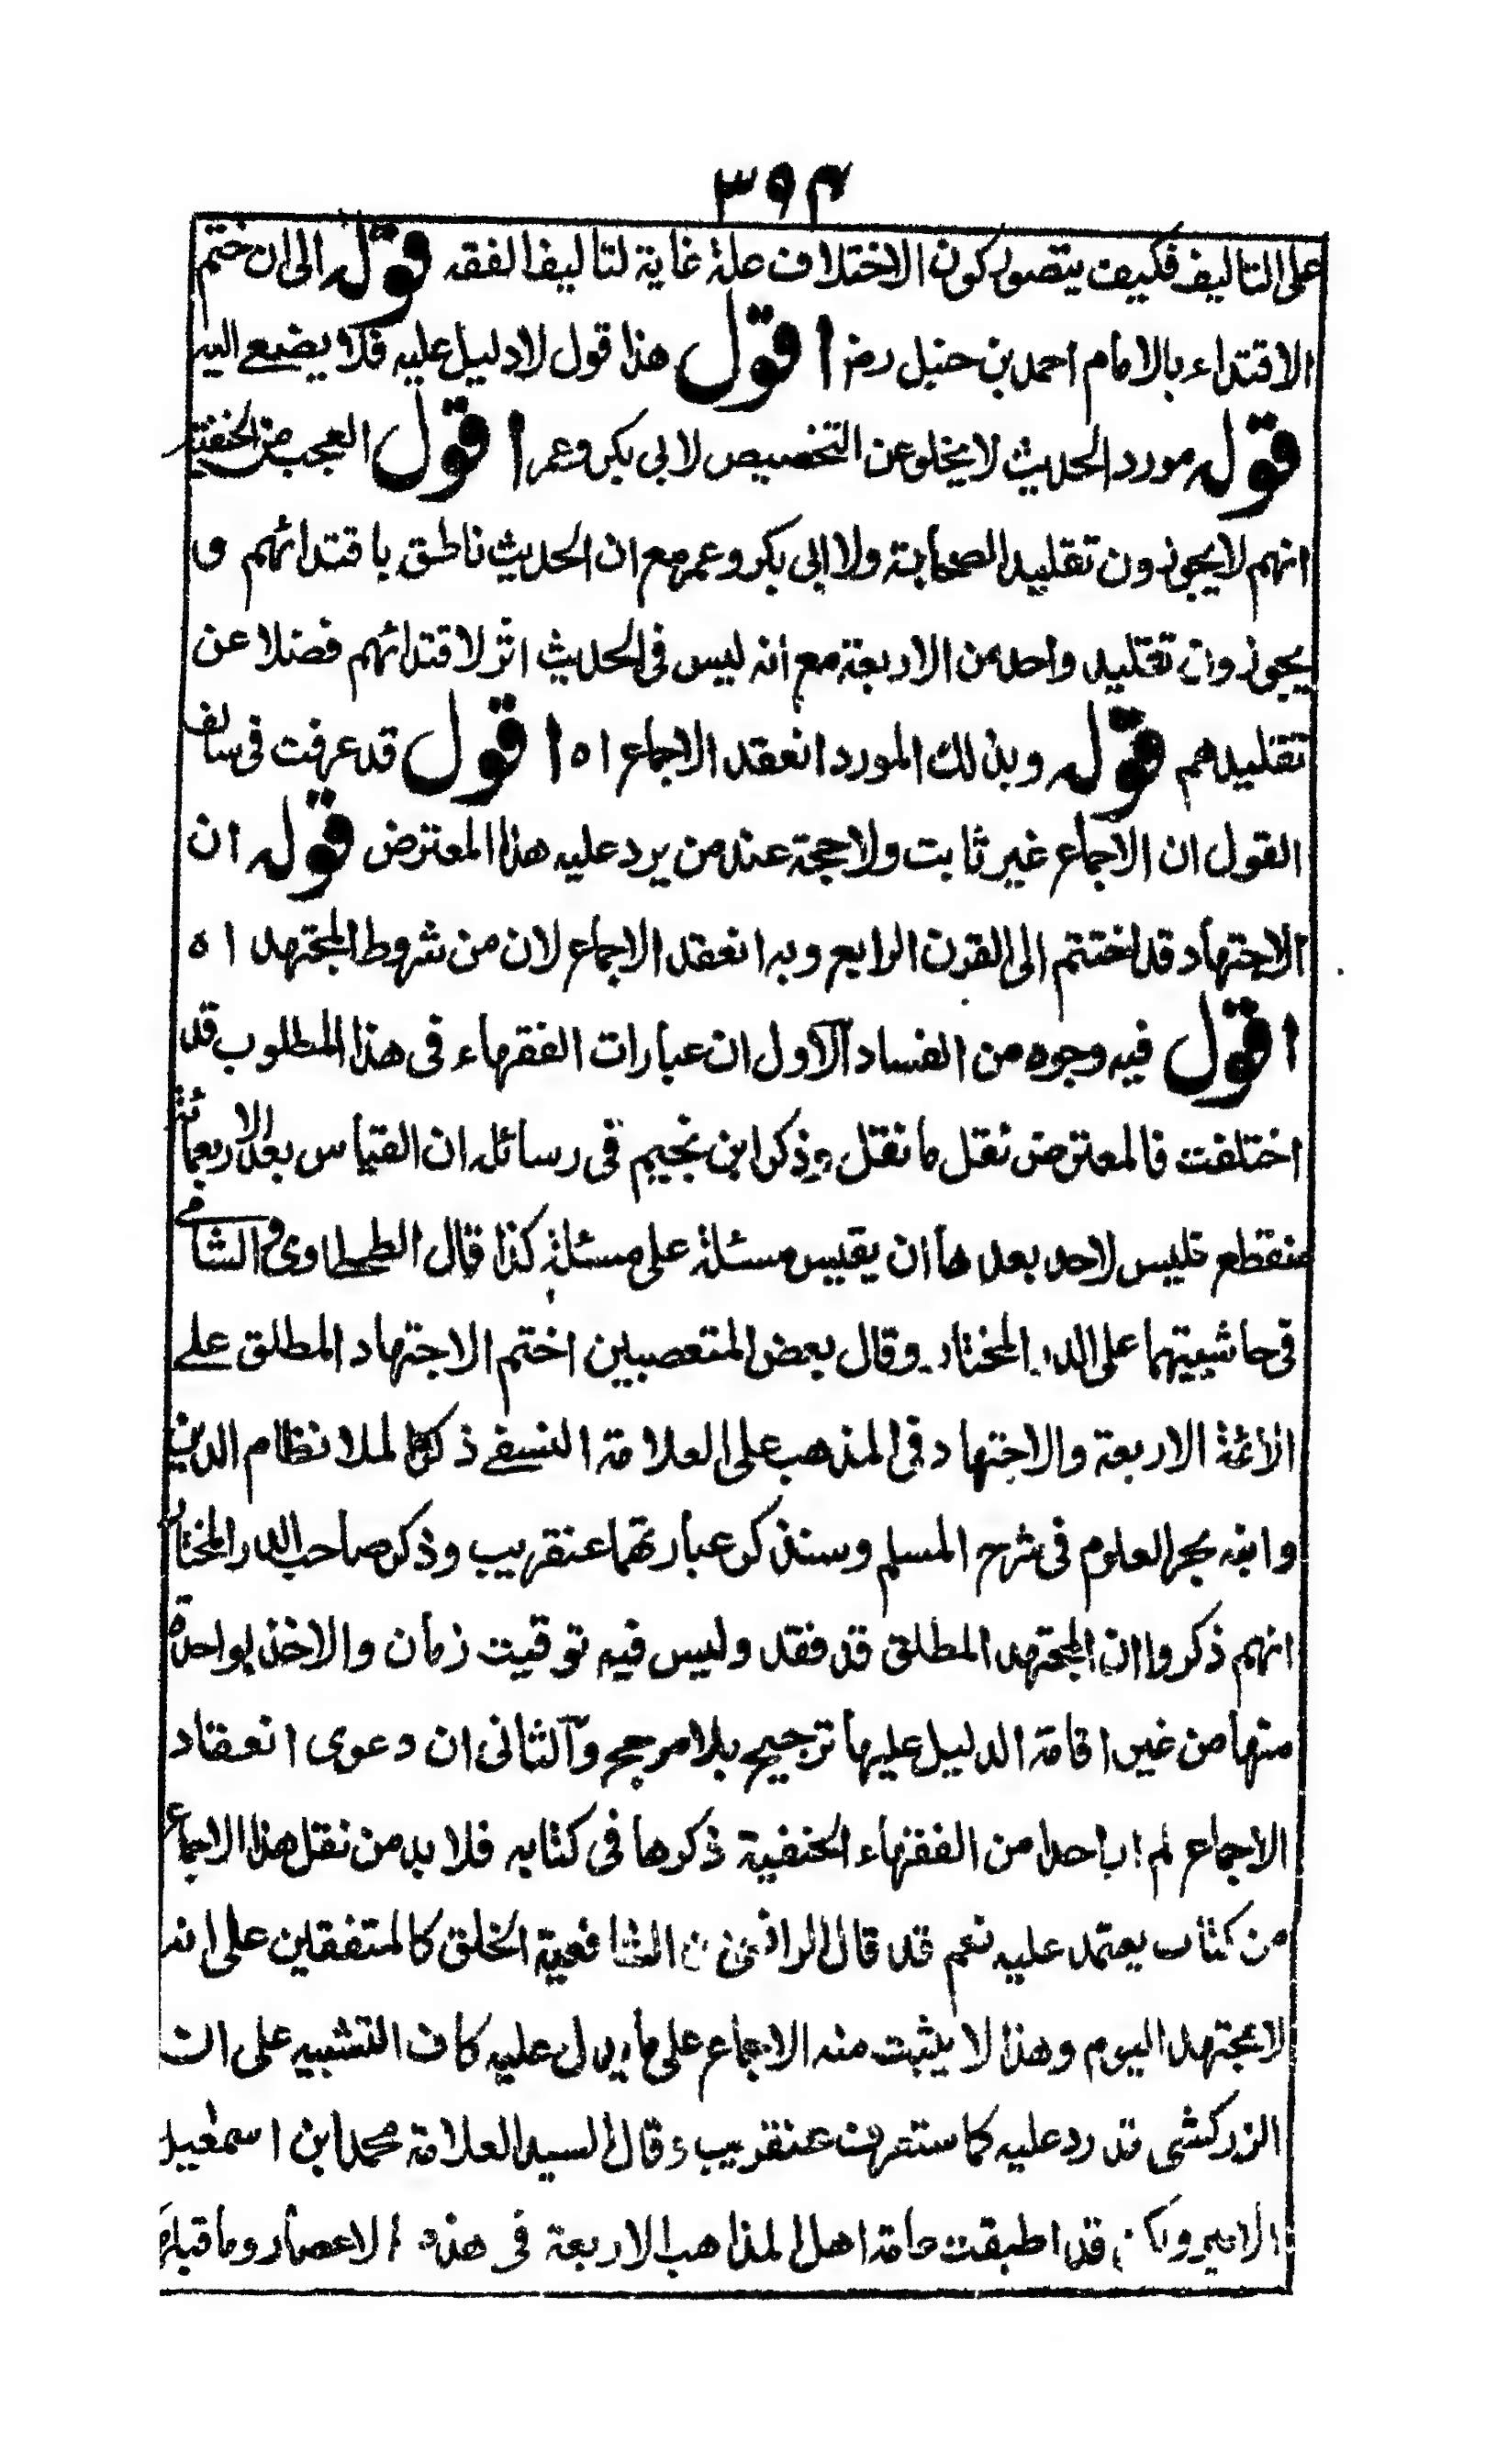 ٣٩٤
على التاليف فكيف يتصور كون الاختلاف علة غاية لتاليف الفقه قوله الى ان ختم
الاقتداء بالامام احمد بن حنبل رض اقول هذا قول لا دليل عليه فلا يضع اليه
قوله مورد الحديث لا يخلو عن التخصيص لابى بكر وعمر اقول العجب من الحنفية
انهم لا يجوزون تقليد الصحابة ولا ابى بكر وعمر مع ان الحديث ناطق باقتدائهم و
يجوزون تقليد واحد من الاربعة مع انه ليس فى الحديث اثر لاقتدائهم فضلا عن
تقليدهم قوله وبذلك المورد انعقد الاجماع اه اقول قد عرفت فى سالف
القول ان الاجماع غير ثابت ولا حجة عند من يرد عليه هذا المعترض قوله ان
الاجتهاد قد اختتم الى القرن الرابع وبه انعقد الاجماع لان من شروط المجتهد اه
اقول فيه وجوه من الفساد الاول ان عبارات الفقهاء فى هذا المطلوب قد
اختلفت فالمعترض نقل ما نقل وذكر ابن نجيم فى رسائله ان القياس بعد الاربعمائة
منقطع فليس لاحد بعدها ان يقيس مسئلة على مسئلة كذا قال الطحطاوى والشامى
فى حاشيتهما على الدر المختار وقال بعض المتعصبين اختم الاجتهاد المطلق على
الائمة الاربعة والاجتهاد فى المذهب على العلامة النسفى ذكره الملا نظام الدين
وابنه بحر العلوم فى شرح المسلم وسنذكر عبارتهما عنقريب وذكر صاحب الدر المختار
انهم ذكروا ان المجتهد المطلق قد فقد وليس فيه توقيت زمان والاخذ بواحدة
منها من غير اقامة الدليل عليها ترجيح بلا مرجح والثانى ان دعوى انعقاد
الاجماع لم ار احدا من الفقهاء الحنفية ذكرها فى كتابه فلا بد من نقل هذا الاجماع
من كتاب يعتمد عليه نعم قد قال الرافعى من الشافعية الخلق كالمتفقين على انه
لا مجتهد اليوم وهذا لا يثبت منه الاجماع على ما يدل عليه كاف التشبيه على ان
الزركشى قد رد عليه كما ستعرف عنقريب وقال السيد العلامة محمد ابن اسمعيل
الامير ولكن قد اطبقت عامة اهل المذاهب الاربعة فى هذه الاعصار وما قبلها